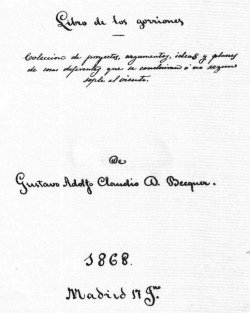 Libro de los gorriones
Coleccion de proyectos, argumentos, ideas y planes
de cosas diferentes que se concluirán ó no segun
sople el viento.
De
Gustavo Adolfo Claudio D. Becquer.
1868.
Madrid 17 Jno